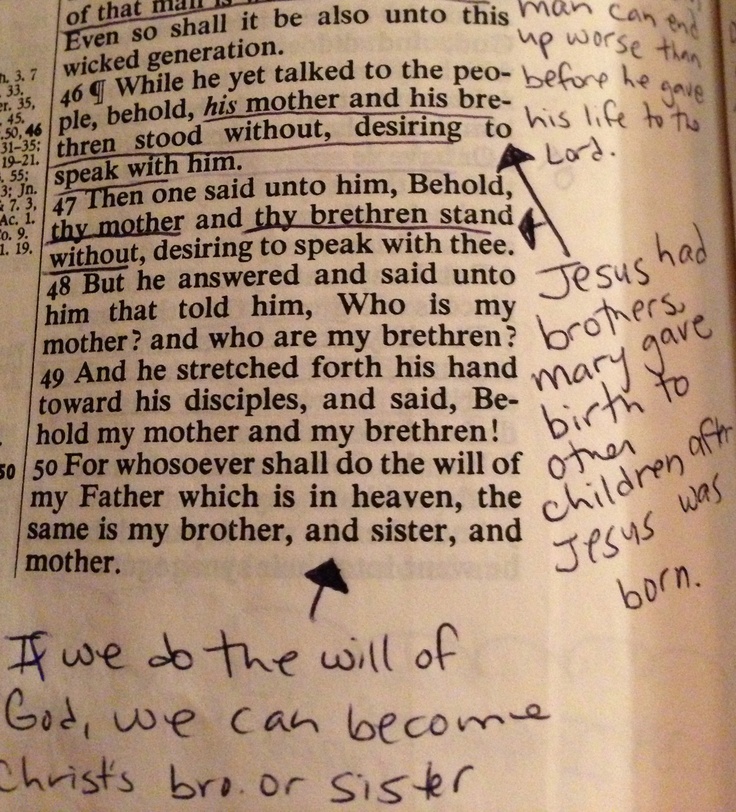 of that man is
Even so shall it be also unto this
wicked generation.
46 ¶ While he yet talked to the peo-
ple, behold, his mother and his bre-
thren stood without, desiring to
speak with him.
47 Then one said unto him, Behold,
thy mother and thy brethren stand
without, desiring to speak with thee.
48 But he answered and said unto
him that told him, Who is my
mother? and who are my brethren?
49 And he stretched forth his hand
toward his disciples, and said, Be-
hold my mother and my brethren!
50 For whosoever shall do the will of
my Father which is in heaven, the
same is my brother, and sister, and
mother.
3. 7
33.
35,
45.
50, 46
31–35;
19–21.
55;
3; Jn.
7. 3,
Ac. 1.
9.
1. 19.
50
man can end
up worse than
before he gave
his life to the
Lord.
Jesus had
brothers.
Mary gave
birth to
other
children after
Jesus was
born.
If we do the will of
God, we can become
Christ's bro. or sister